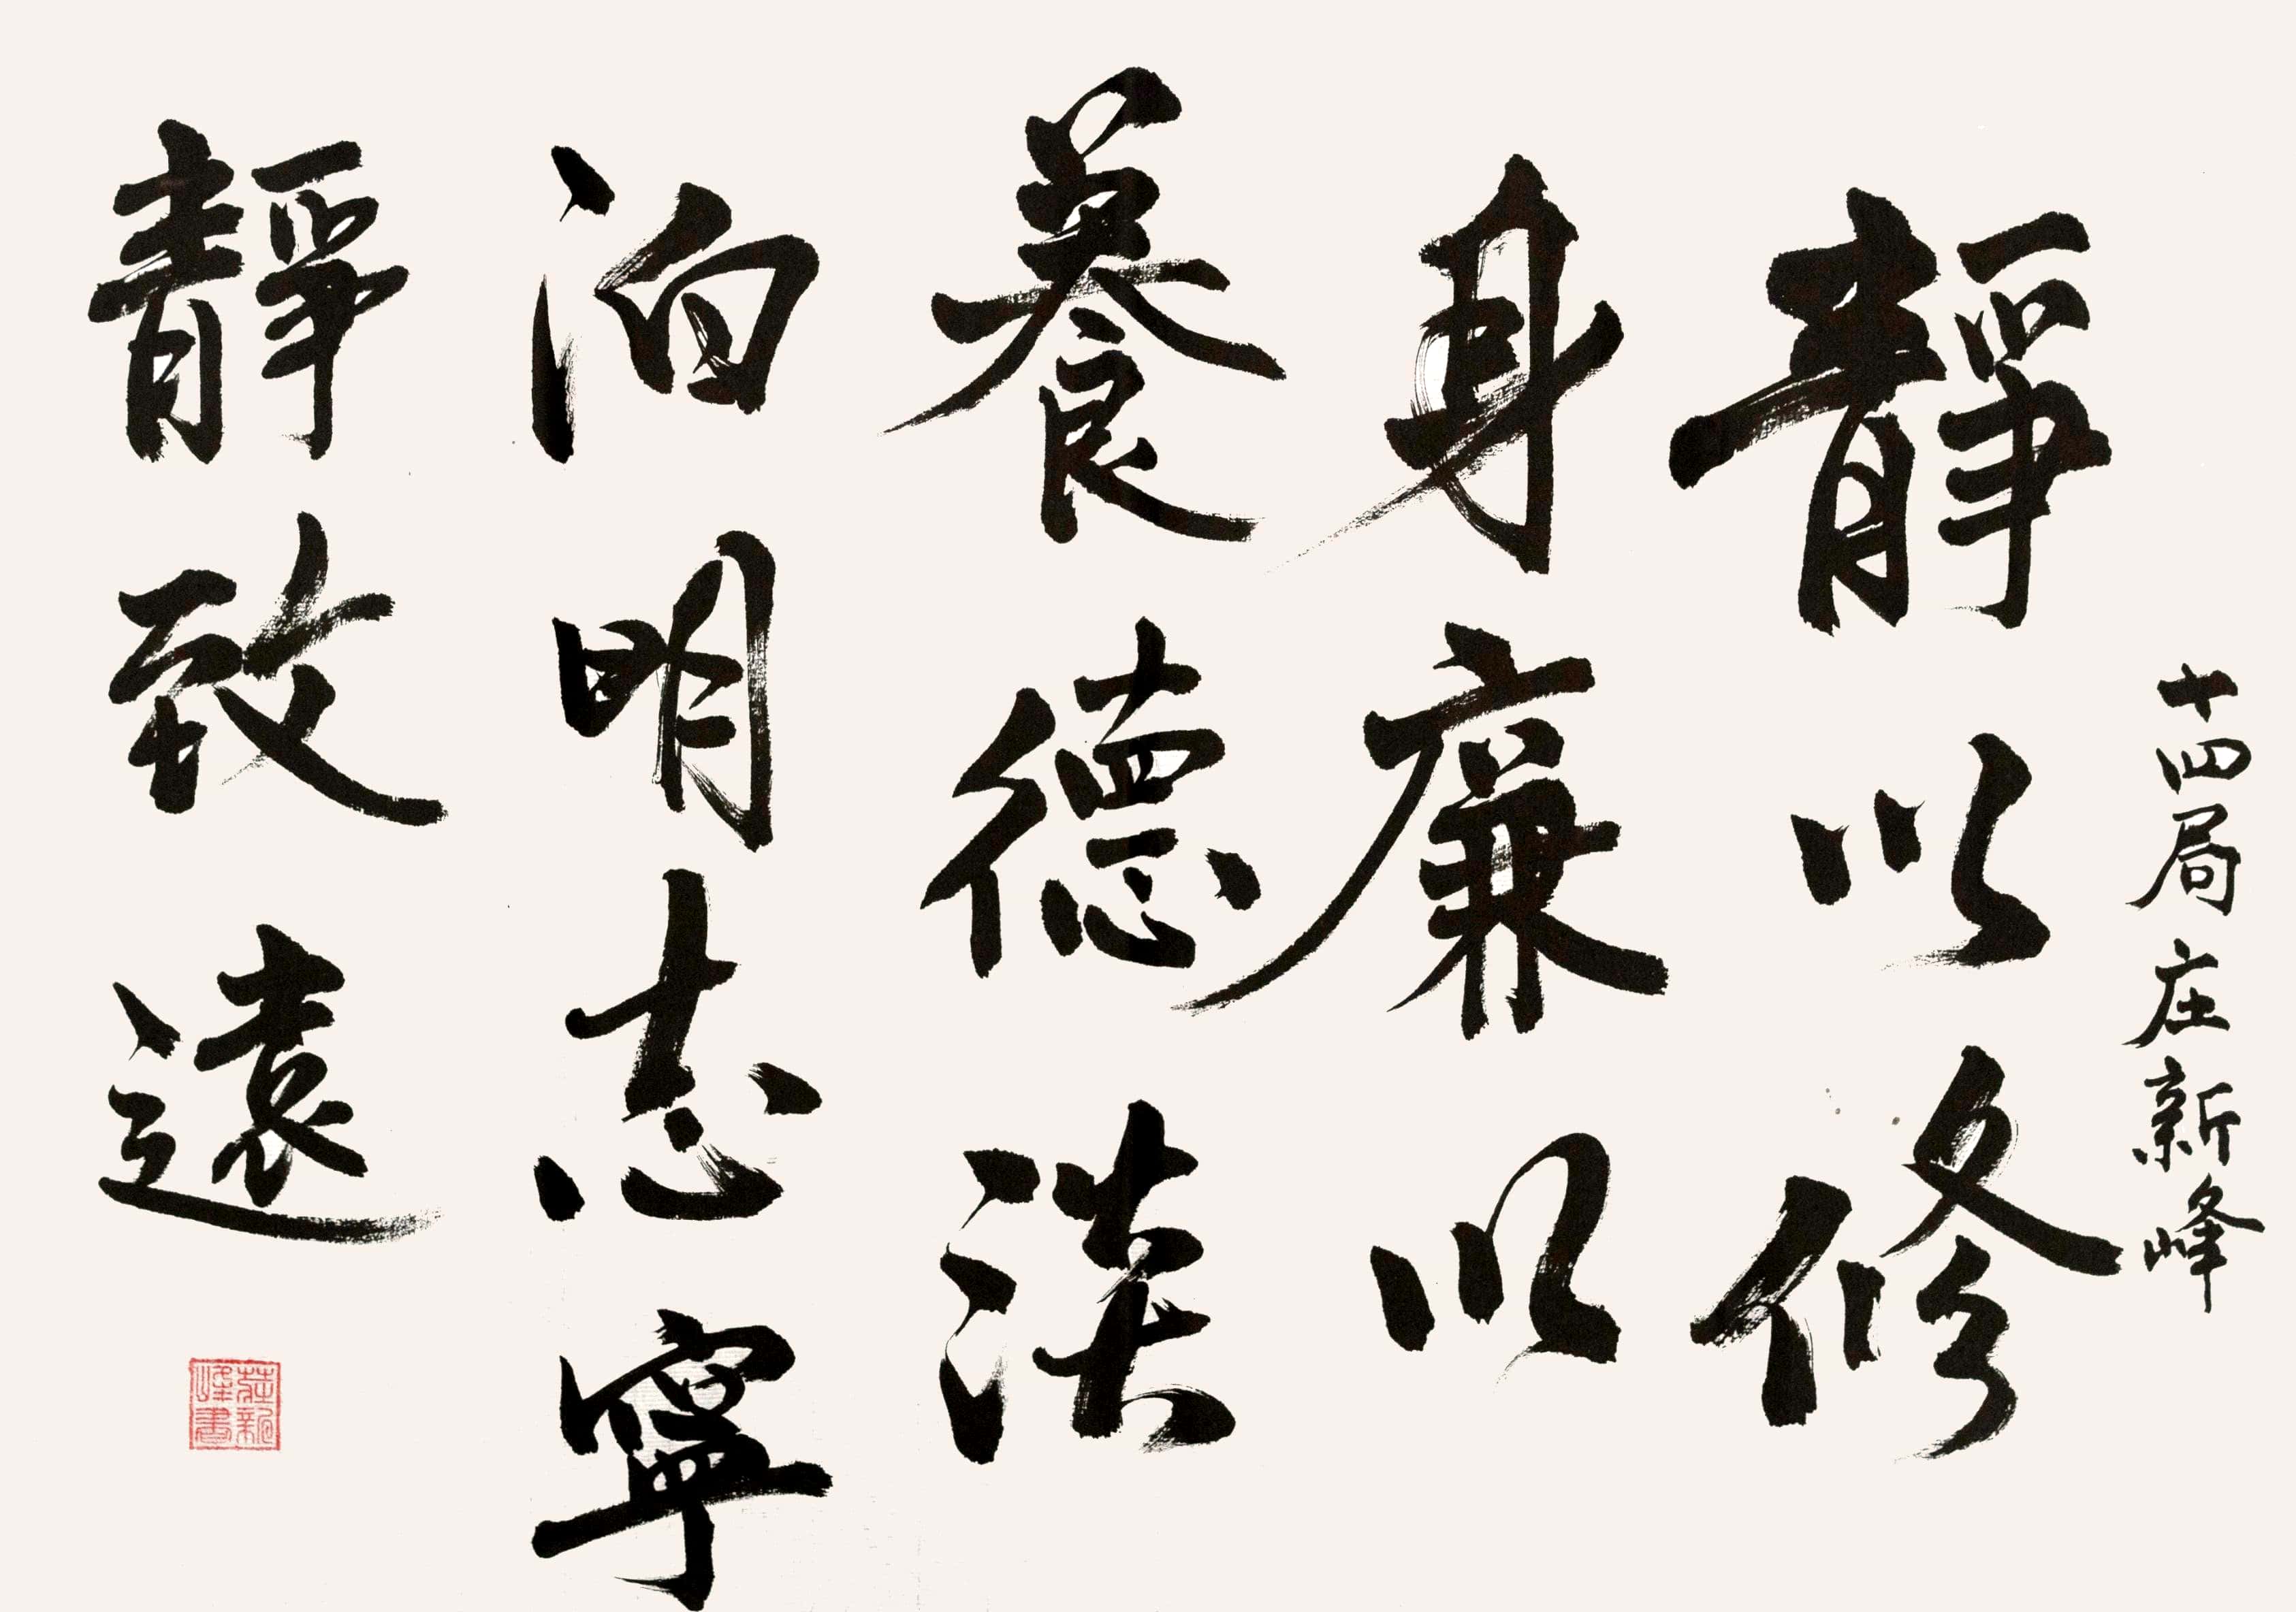 十四局 庄新峰
靜以修
身廉以
養德淡
泊明志寧
靜致遠
莊新峰書